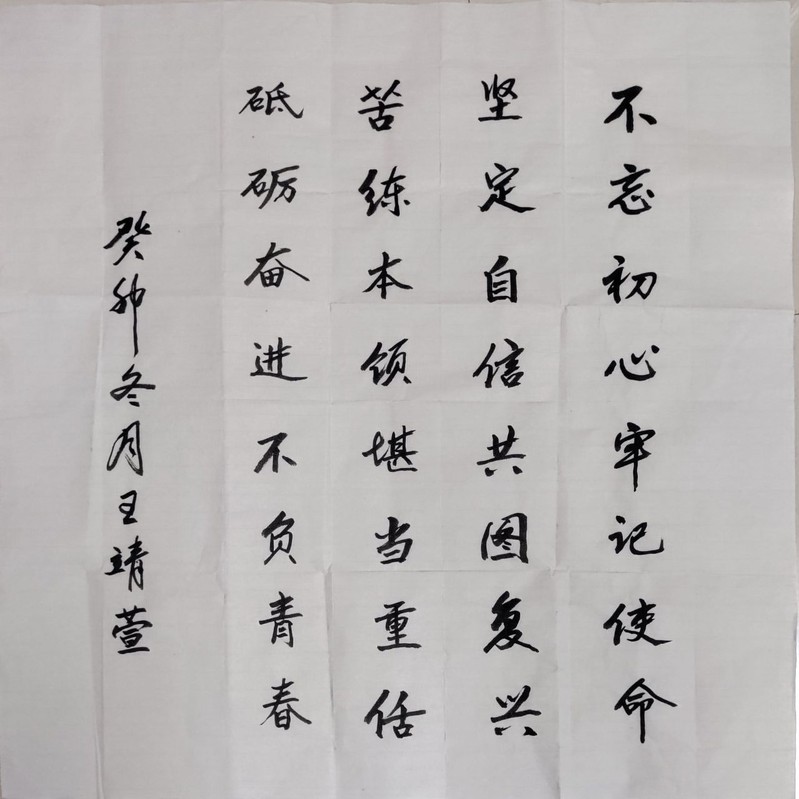 不忘初心牢记使命
坚定自信共图复兴
苦练本领堪当重任
砥砺奋进不负青春
癸卯冬月王靖萱